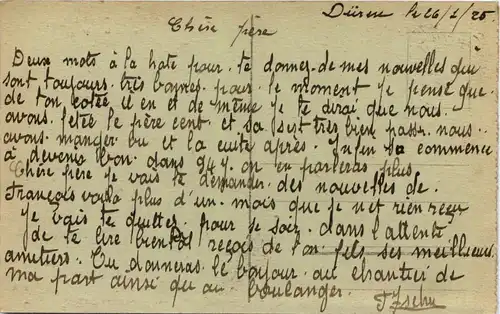 Düren le 26/2/25
Chère père
Deux mots à la hate pour te donner de mes nouvelles qui
sont toujours très bonnes pour le moment je pense que
de ton cotée il en et de même je te dirai que nous
avons fetée le père cent et sa sest très bien passe nous
avons manger bu et la cuite après Enfin sa commence
à devenir bon dans 94 j on en parleras plus
Chère père je vais te demander des nouvelles de
François voila plus d'un mois que je net rien reçu
Je vais te quitter pour se soir dans l'attente
de te lire bientot reçois de ton fils ses meilleurs
amitiers Tu donneras le bonjour au chantier de
ma part ainsi qu au boulanger